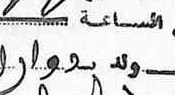 الساعة
ولد بدوار